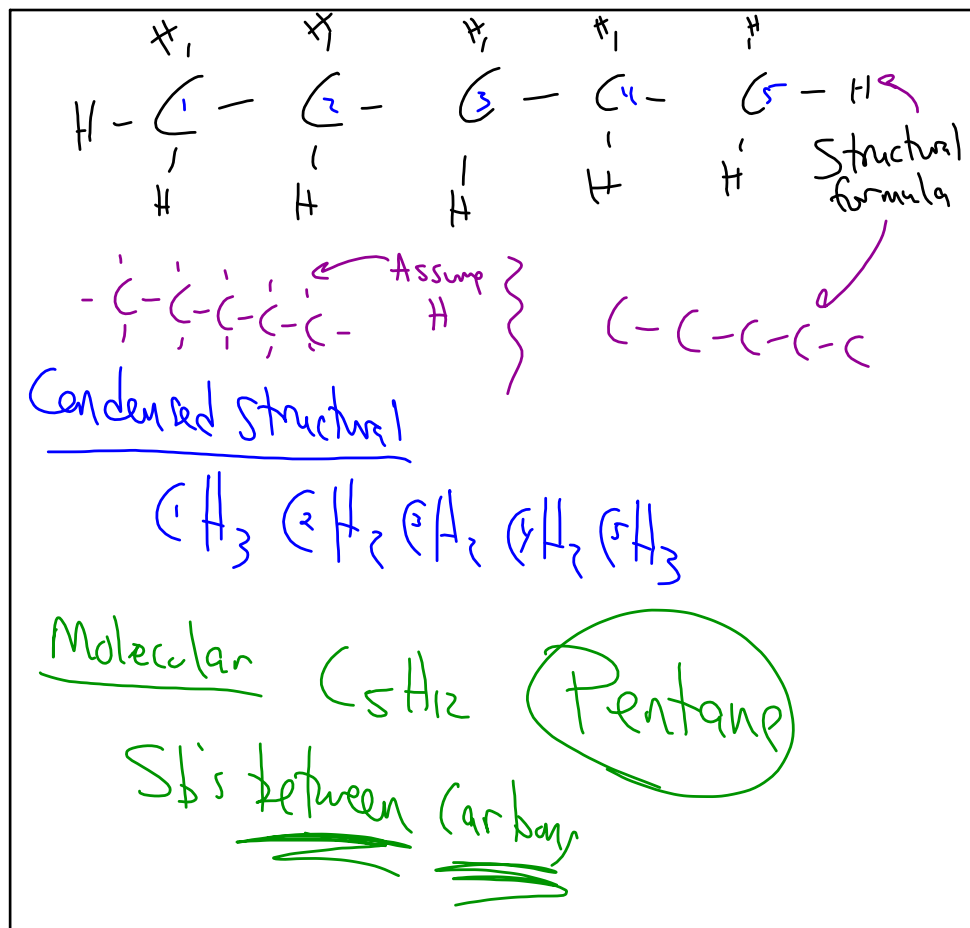 H H H H H
H - C1 - C2 - C3 - C4 - C5 - H
H H H H H
Structural
formula
- C - C - C - C - C -
Assume
H
C - C - C - C - C
Condensed Structural
C1H3 C2H2 C3H2 C4H2 C5H3
Molecular C5H12 Pentane
Sb's between Carbons